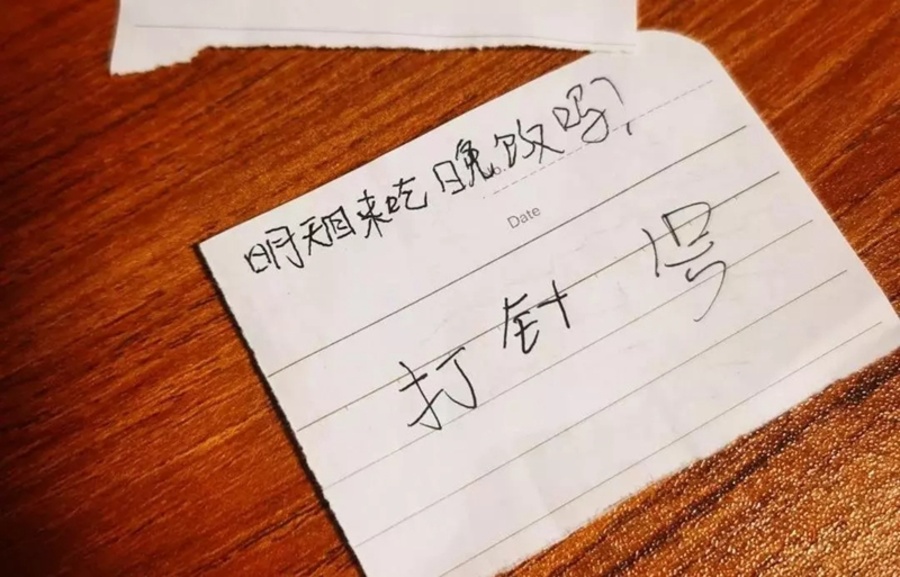 明天回来吃晚饭吗?
Date
打针 号